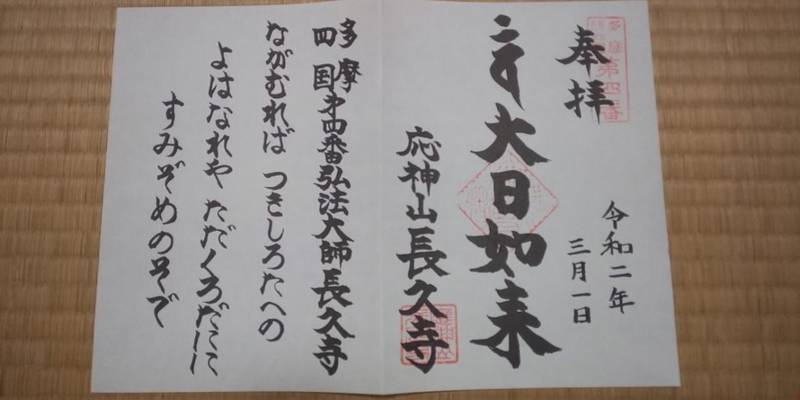 奉拝
多摩
第四番
令和二年
三月一日
大日如来
応神山長久寺
多摩
四国
第四番弘法大師長久寺
ながむれば つきしろたへの
よはなれや ただくろだにに
すみぞめのそで